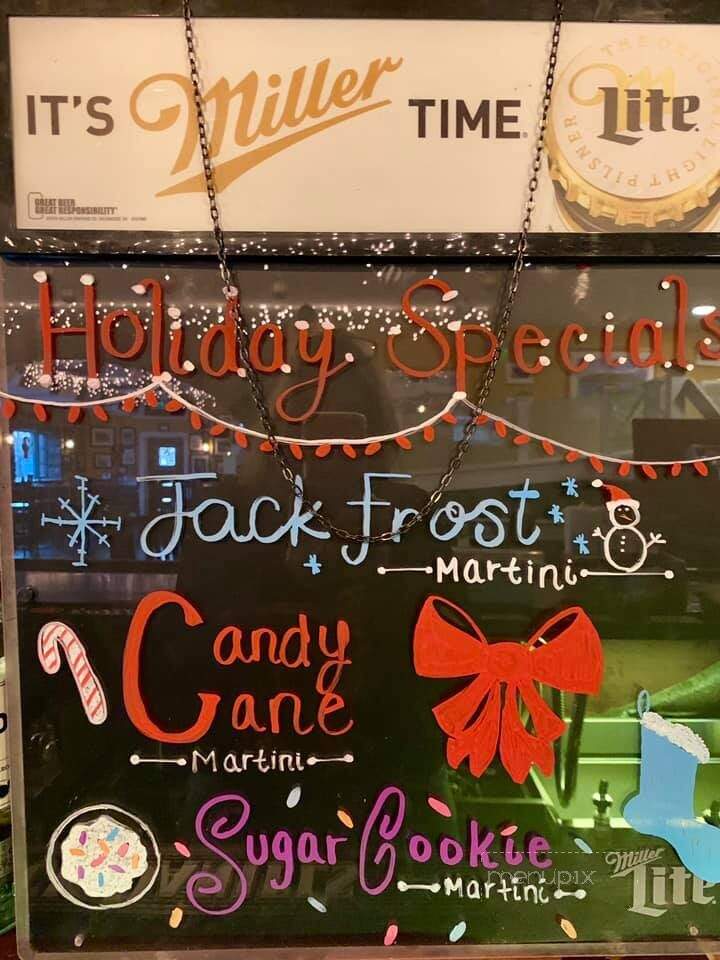 IT'S Miller TIME.
THE ORIGINAL
Lite
LIGHT PILSNER
GREAT BEER
GREAT RESPONSIBILITY
Holiday Specials
Jack Frost
Martini
Candy
Cane
Martini
Sugar Cookie
Martini
menupix
Miller
Lite